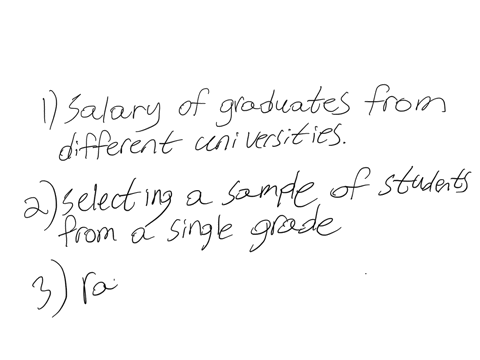 1) Salary of graduates from
different universities.
2) selecting a sample of students
from a single grade
3) ra